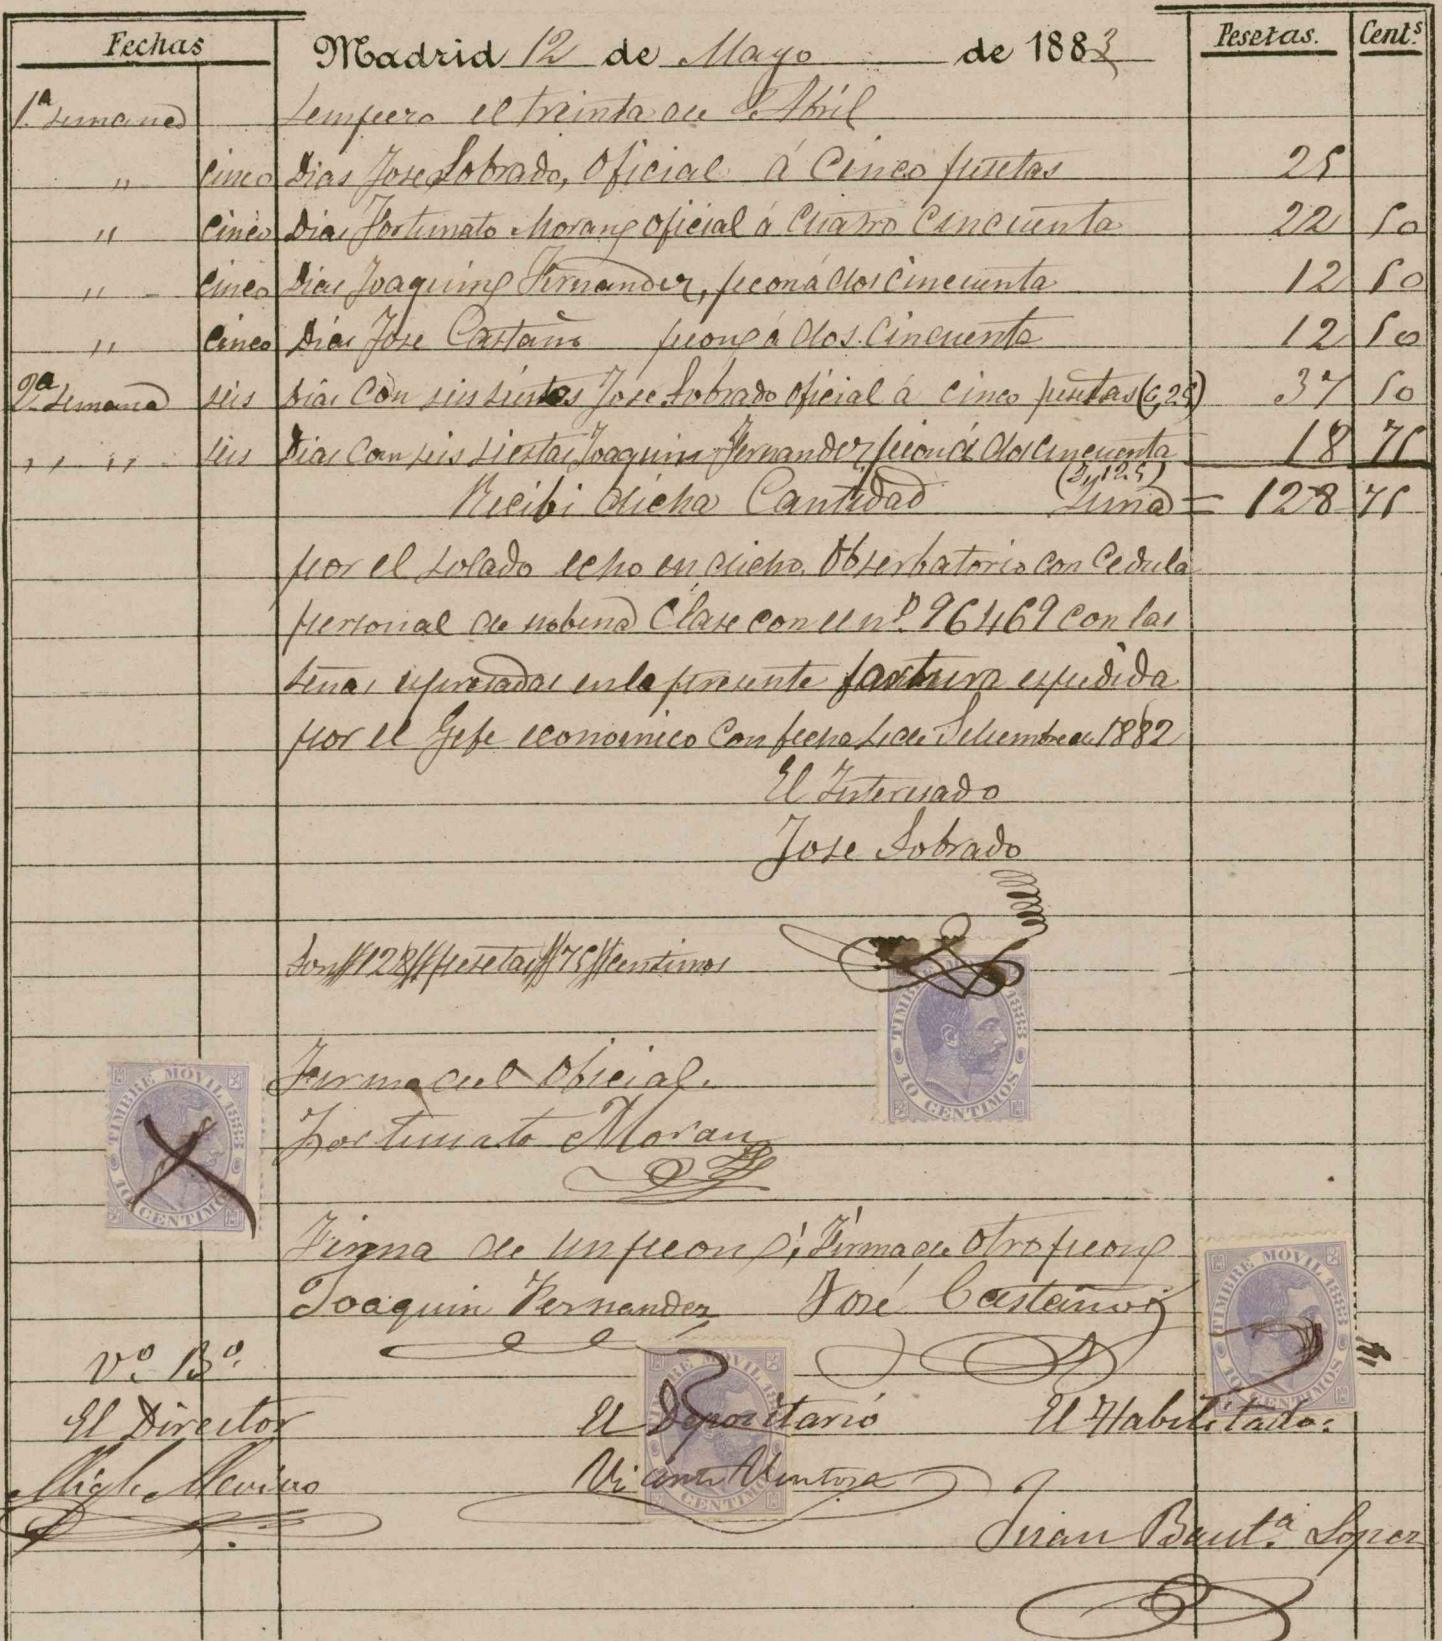 Fechas Madrid 12 de Mayo de 1883 Pesetas. Cent.s
1.a semana Sempero el treinta de Abril
" cinco Dias Jose Lobrado, Oficial á Cinco pesetas 25
" cinco Dias Fortunato Moran oficial á cuatro cincuenta 22 50
" cinco Dias Joaquin Fernandez, peon á dos cincuenta 12 50
" cinco Dias Jose Castaño peon á dos cincuenta 12 50
2.a semana seis Dias con seis siestas Jose Lobrado oficial á cinco pesetas (6,25) 37 50
" " seis Dias con seis siestas Joaquin Fernandez peon á dos cincuenta 18 75
(3,125)
Recibi dicha Cantidad Suma = 128 75
por el solado echo en dicho Obserbatorio con Cedula
personal de nobena Clase con el n.o 96469 con las
señas espresadas en la presente factura espedida
por el Gefe economico con fecha 4 de Setiembre de 1882
El Interesado
Jose Lobrado
Son//128//pesetas//75//centimos
TIMBRE MOVIL 1883
10 CENTIMOS
Firma del Oficial.
Fortunato Moran
TIMBRE MOVIL 1883
10 CENTIMOS
Firma de un peon Firma de otro peon
Joaquin Fernandez José Castaño
TIMBRE MOVIL 1883
10 CENTIMOS
V.o B.o
El Director El Depositario El Habilitado:
TIMBRE MOVIL 1883
10 CENTIMOS
Mig.l Merino Vicente Ventosa
Juan Baut.a Lopez